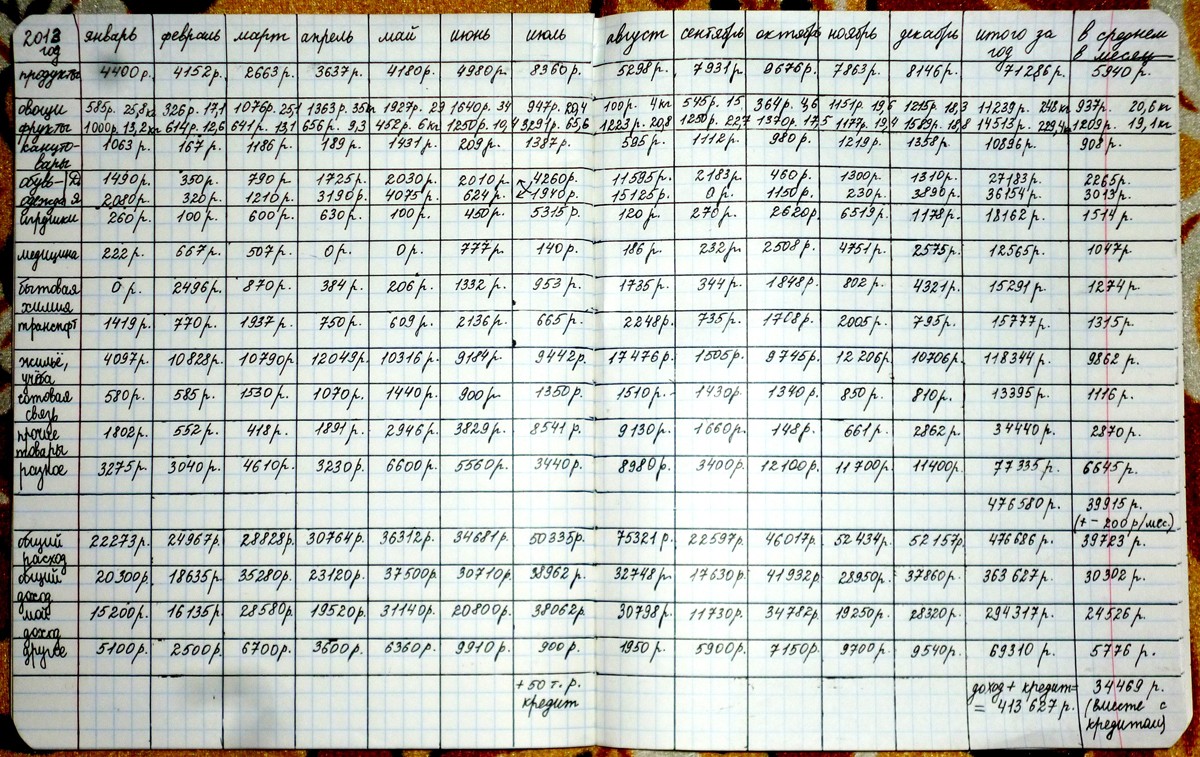 2013 год январь февраль март апрель май июнь июль август сентябрь октябрь ноябрь декабрь итого за год в среднем в месяц
продукты 4400р. 4152р. 2663р. 3637р. 4180р. 4980р. 8360р. 5298р. 7931р. 9676р. 7863р. 8146р. 71286р. 5940р.
овощи 585р. 25,8кг 926р. 17,1 1076р. 25,1 1363р. 35кг 1927р. 29 1640р. 34 947р. 20,4 100р. 4кг 545р. 15 364р. 4,6 1151р. 19,6 1215р. 18,3 11239р. 248кг 937р. 20,6кг
фрукты 1000р. 13,2кг 614р. 12,6 641р. 13,1 656р. 9,3 452р. 6кг 1250р. 10,4 3291р. 65,6 1223р. 20,8 1250р. 22,7 1370р. 17,5 1177р. 19,4 1589р. 18,8 14513р. 229,4 1209р. 19,1кг
канцто-
вары 1063р. 167р. 1186р. 189р. 1431р. 209р. 1387р. 595р. 1112р. 980р. 1219р. 1358р. 10896р. 908р.
обувь Д 1490р. 350р. 790р. 1725р. 2030р. 2010р. 4260р. 11595р. 2183р. 460р. 1300р. 1310р. 27183р. 2265р.
одежда Я 2080р. 320р. 1210р. 3190р. 4075р. 624р. 1940р. 15125р. 0р. 1150р. 230р. 3890р. 36154р. 3013р.
260р. 100р. 600р. 630р. 100р. 450р. 5315р. 120р. 270р. 2620р. 6519р. 1178р. 18162р. 1514р.
медицина 222р. 667р. 507р. 0р. 0р. 777р. 140р. 186р. 232р. 2508р. 4751р. 2575р. 12565р. 1047р
бытовая
химия 0р. 2496р. 870р. 384р. 206р. 1332р. 953р. 1735р. 344р. 1848р. 802р. 4321р. 15291р. 1274р.
транспорт 1419р. 770р. 1937р. 750р. 609р. 2136р. 665р. 2248р. 735р. 1708р. 2005р. 795р. 15777р. 1315р.
жильё,
учёба 4097р. 10828р. 10790р. 12049р. 10316р. 9184р. 9442р. 17476р. 1505р. 9745р. 12206р. 10706р. 118344р. 9862р.
сотовая
связь 580р. 585р. 1530р. 1070р. 1440р. 900р. 1350р. 1510р. 1430р. 1340р. 850р. 810р. 13395р. 1116р.
прочие
товары 1802р. 552р. 418р. 1891р. 2946р. 3829р. 8541р. 9130р. 1660р. 148р. 661р. 2862р. 34440р. 2870р.
3275р. 3040р. 4610р. 3230р. 6600р. 5560р. 3440р. 8980р. 3400р. 12100р. 11700р. 11400р. 77335р. 6645р.
476580р. 39915р.
(+ - 200р/мес.)
общий
расход 22273р. 24967р. 28828р. 30764р. 36312р. 34681р. 50335р. 75321р. 22597р. 46017р. 52434р. 52157р. 476686р. 39723р.
общий
доход 20300р. 18635р. 35280р. 23120р. 37500р. 30710р. 38962р. 32748р. 17630р. 41932р. 28950р. 37860р. 363627р. 30302р.
мой
доход 15200р. 16135р. 28580р. 19520р. 31140р. 20800р. 38062р. 30798р. 11730р. 34782р. 19250р. 28320р. 294317р. 24526р.
другое 5100р. 2500р. 6700р. 3600р. 6360р. 9910р. 900р. 1950р. 5900р. 7150р. 9700р. 9540р. 69310р. 5776р.
+50 т.р.
кредит
доход + кредит=
= 413627р.
34469р.
(вместе с
кредитом)